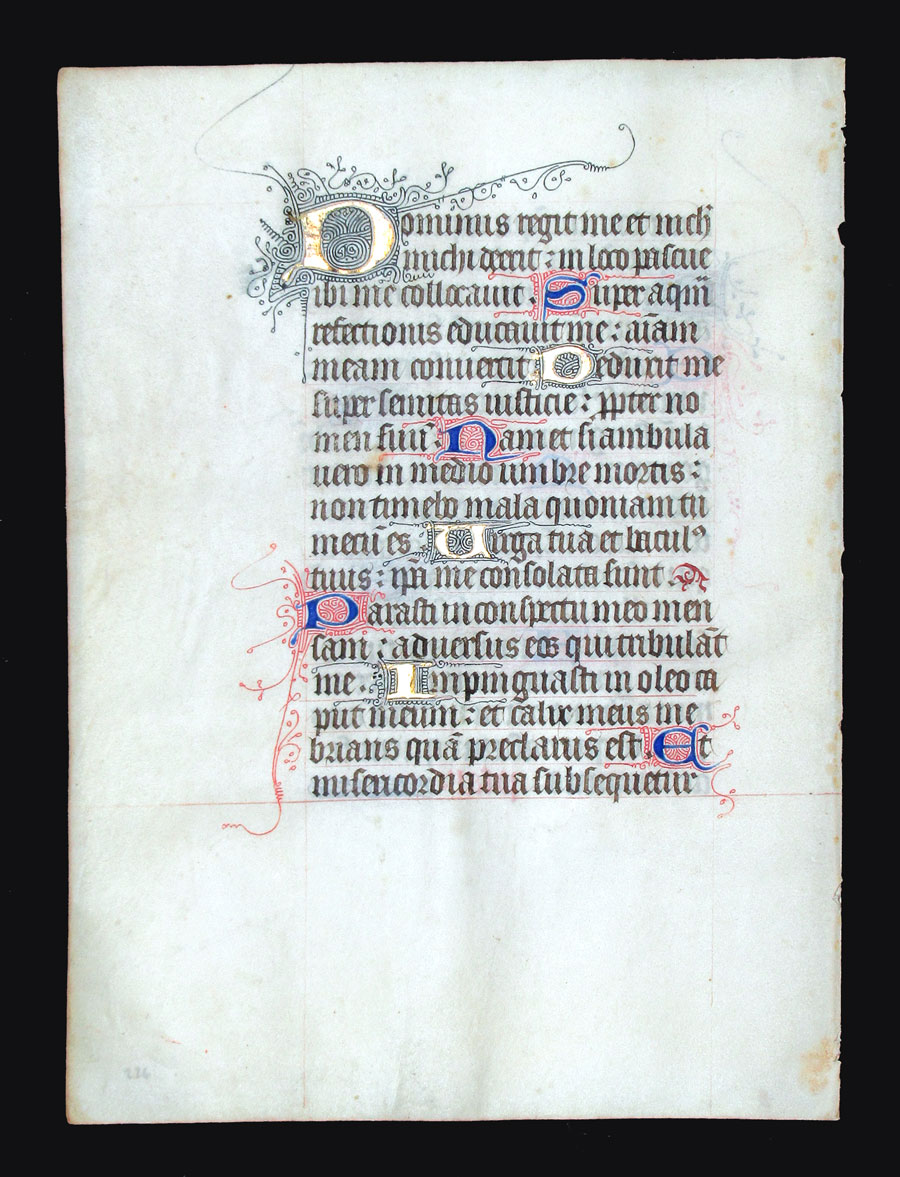 Dominus regit me et nich̄
michi deerit : in loco pascue
ibi me collocauit . Super aquā
refectionis educauit me : aīam
meam conuertit Deduxit me
super semitas iusticie : ꝓpter no
men suū : Nam et si ambula
uero in medio umbre mortis :
non timebo mala quoniam tu
mecū es . Uirga tua et baculꝰ
tuus : ip̄a me consolata sunt .
Parasti in conspectu meo men
sam : aduersus eos qui tribulāt
me . Impinguasti in oleo ca
put meum : et calix meus ine
brians quā preclarus est . Et
misericordia tua subsequetur
236